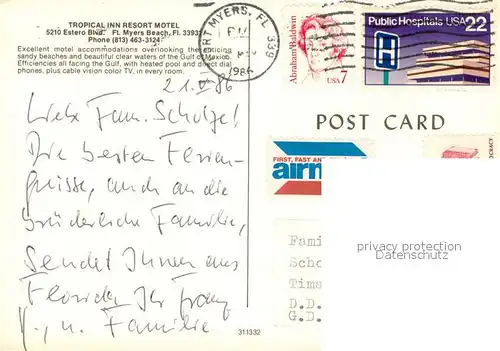 TROPICAL INN RESORT MOTEL
5210 Estero Blvd. Ft. Myers Beach, Fl. 3393
Phone (813) 463-3124
Excellent motel accommodations overlooking the enticing
sandy beaches and beautiful clear waters of the Gulf of Mexico.
Efficiencies all facing the Gulf, with heated pool and direct dial
phones, plus cable vision color TV, in every room.
FORT MYERS, FL 339
PM
1986
Abraham Baldwin
USA 7
Public Hospitals USA 22
H
21. 86
Liebe Fam. Scholze!
Die besten Ferien-
grüsse, auch an die
brüderliche Familie,
Sendet Ihnen aus
Florida Ihr Franz
V., u. Familie
POST CARD
FIRST, FAST AN
airm
OCRACY
privacy protection
Datenschutz
Fami
Scho
Tims
D.D.
G.D.
311332